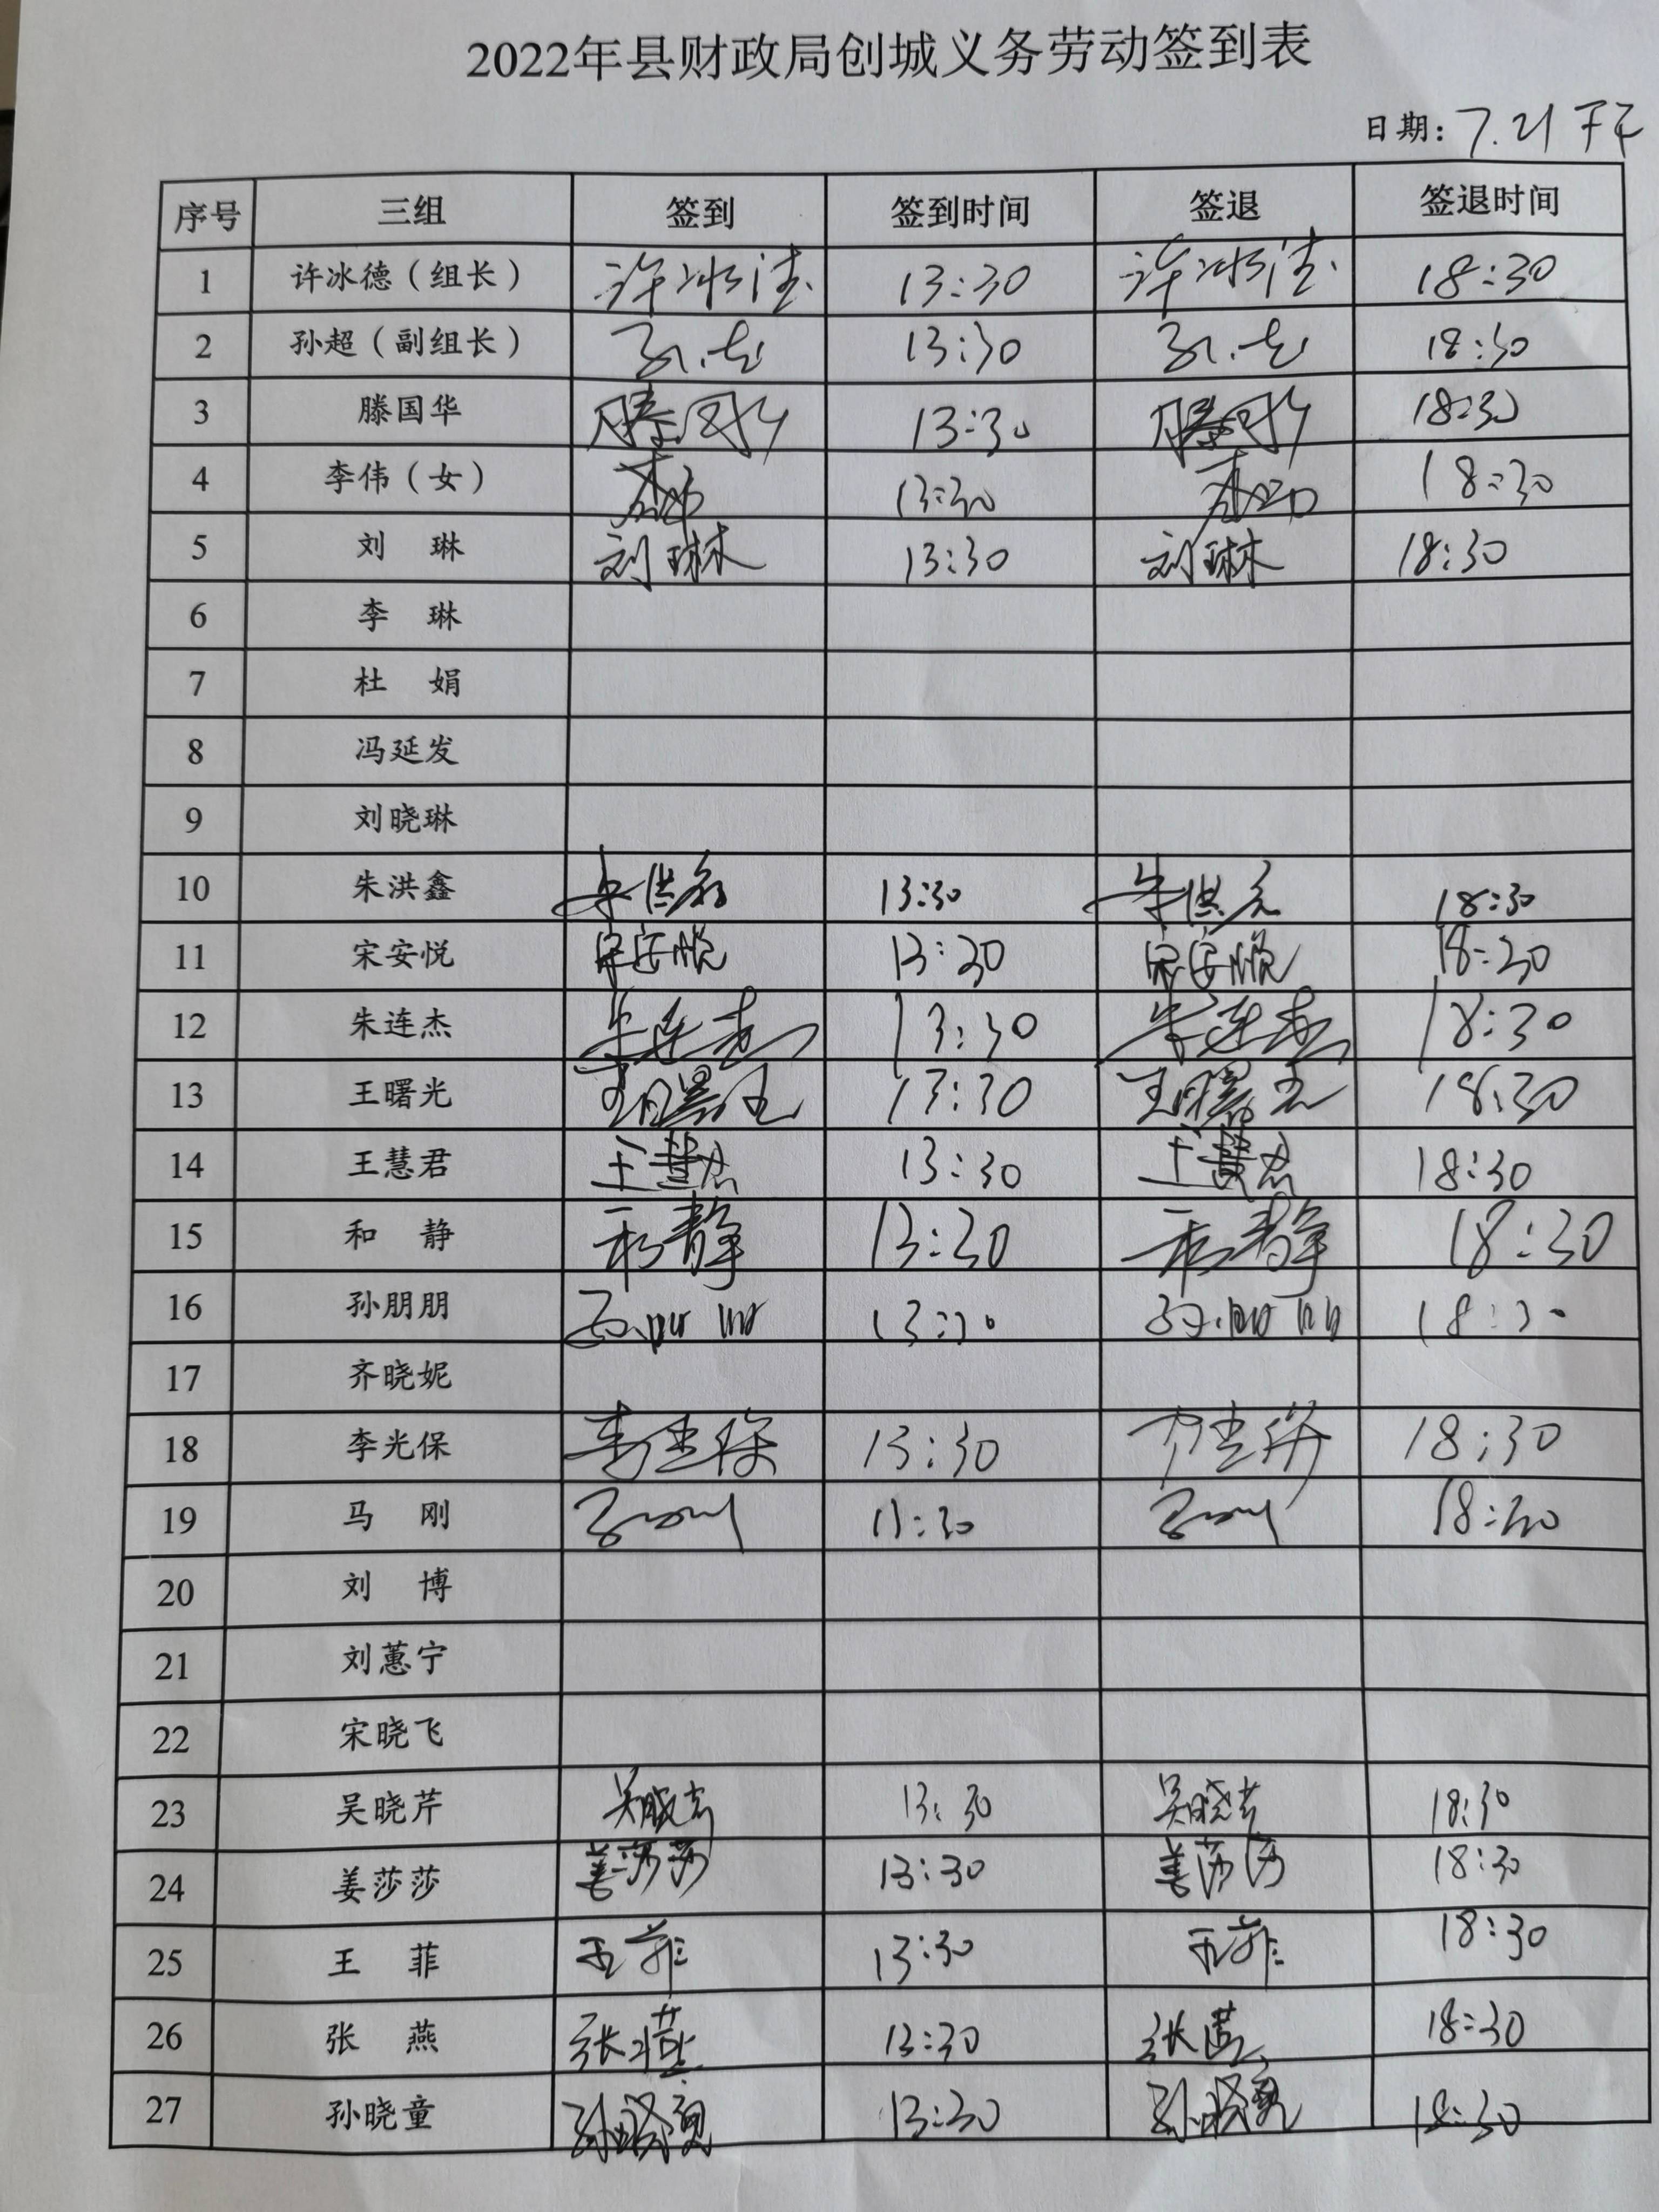 2022年县财政局创城义务劳动签到表
日期: 7.21 下午
序号 三组 签到 签到时间 签退 签退时间
1 许冰德（组长） 许冰德 13:30 许冰德 18:30
2 孙超（副组长） 孙超 13:30 孙超 18:30
3 滕国华 滕国华 13:30 滕国华 18:30
4 李伟（女） 李伟 13:30 李伟 18:30
5 刘 琳 刘琳 13:30 刘琳 18:30
6 李 琳
7 杜 娟
8 冯延发
9 刘晓琳
10 朱洪鑫 朱洪鑫 13:30 朱洪鑫 18:30
11 宋安悦 宋安悦 13:30 宋安悦 18:30
12 朱连杰 朱连杰 13:30 朱连杰 18:30
13 王曙光 王曙光 13:30 王曙光 18:30
14 王慧君 王慧君 13:30 王慧君 18:30
15 和 静 和静 13:30 和静 18:30
16 孙朋朋 孙朋朋 13:30 孙朋朋 18:30
17 齐晓妮
18 李光保 李光保 13:30 李光保 18:30
19 马 刚 马刚 13:30 马刚 18:30
20 刘 博
21 刘蕙宁
22 宋晓飞
23 吴晓芹 吴晓芹 13:30 吴晓芹 18:30
24 姜莎莎 姜莎莎 13:30 姜莎莎 18:30
25 王 菲 王菲 13:30 王菲 18:30
26 张 燕 张燕 13:30 张燕 18:30
27 孙晓童 孙晓童 13:30 孙晓童 18:30